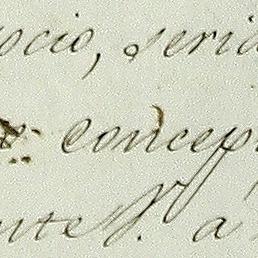 ocio, seria
concep
nte V. á